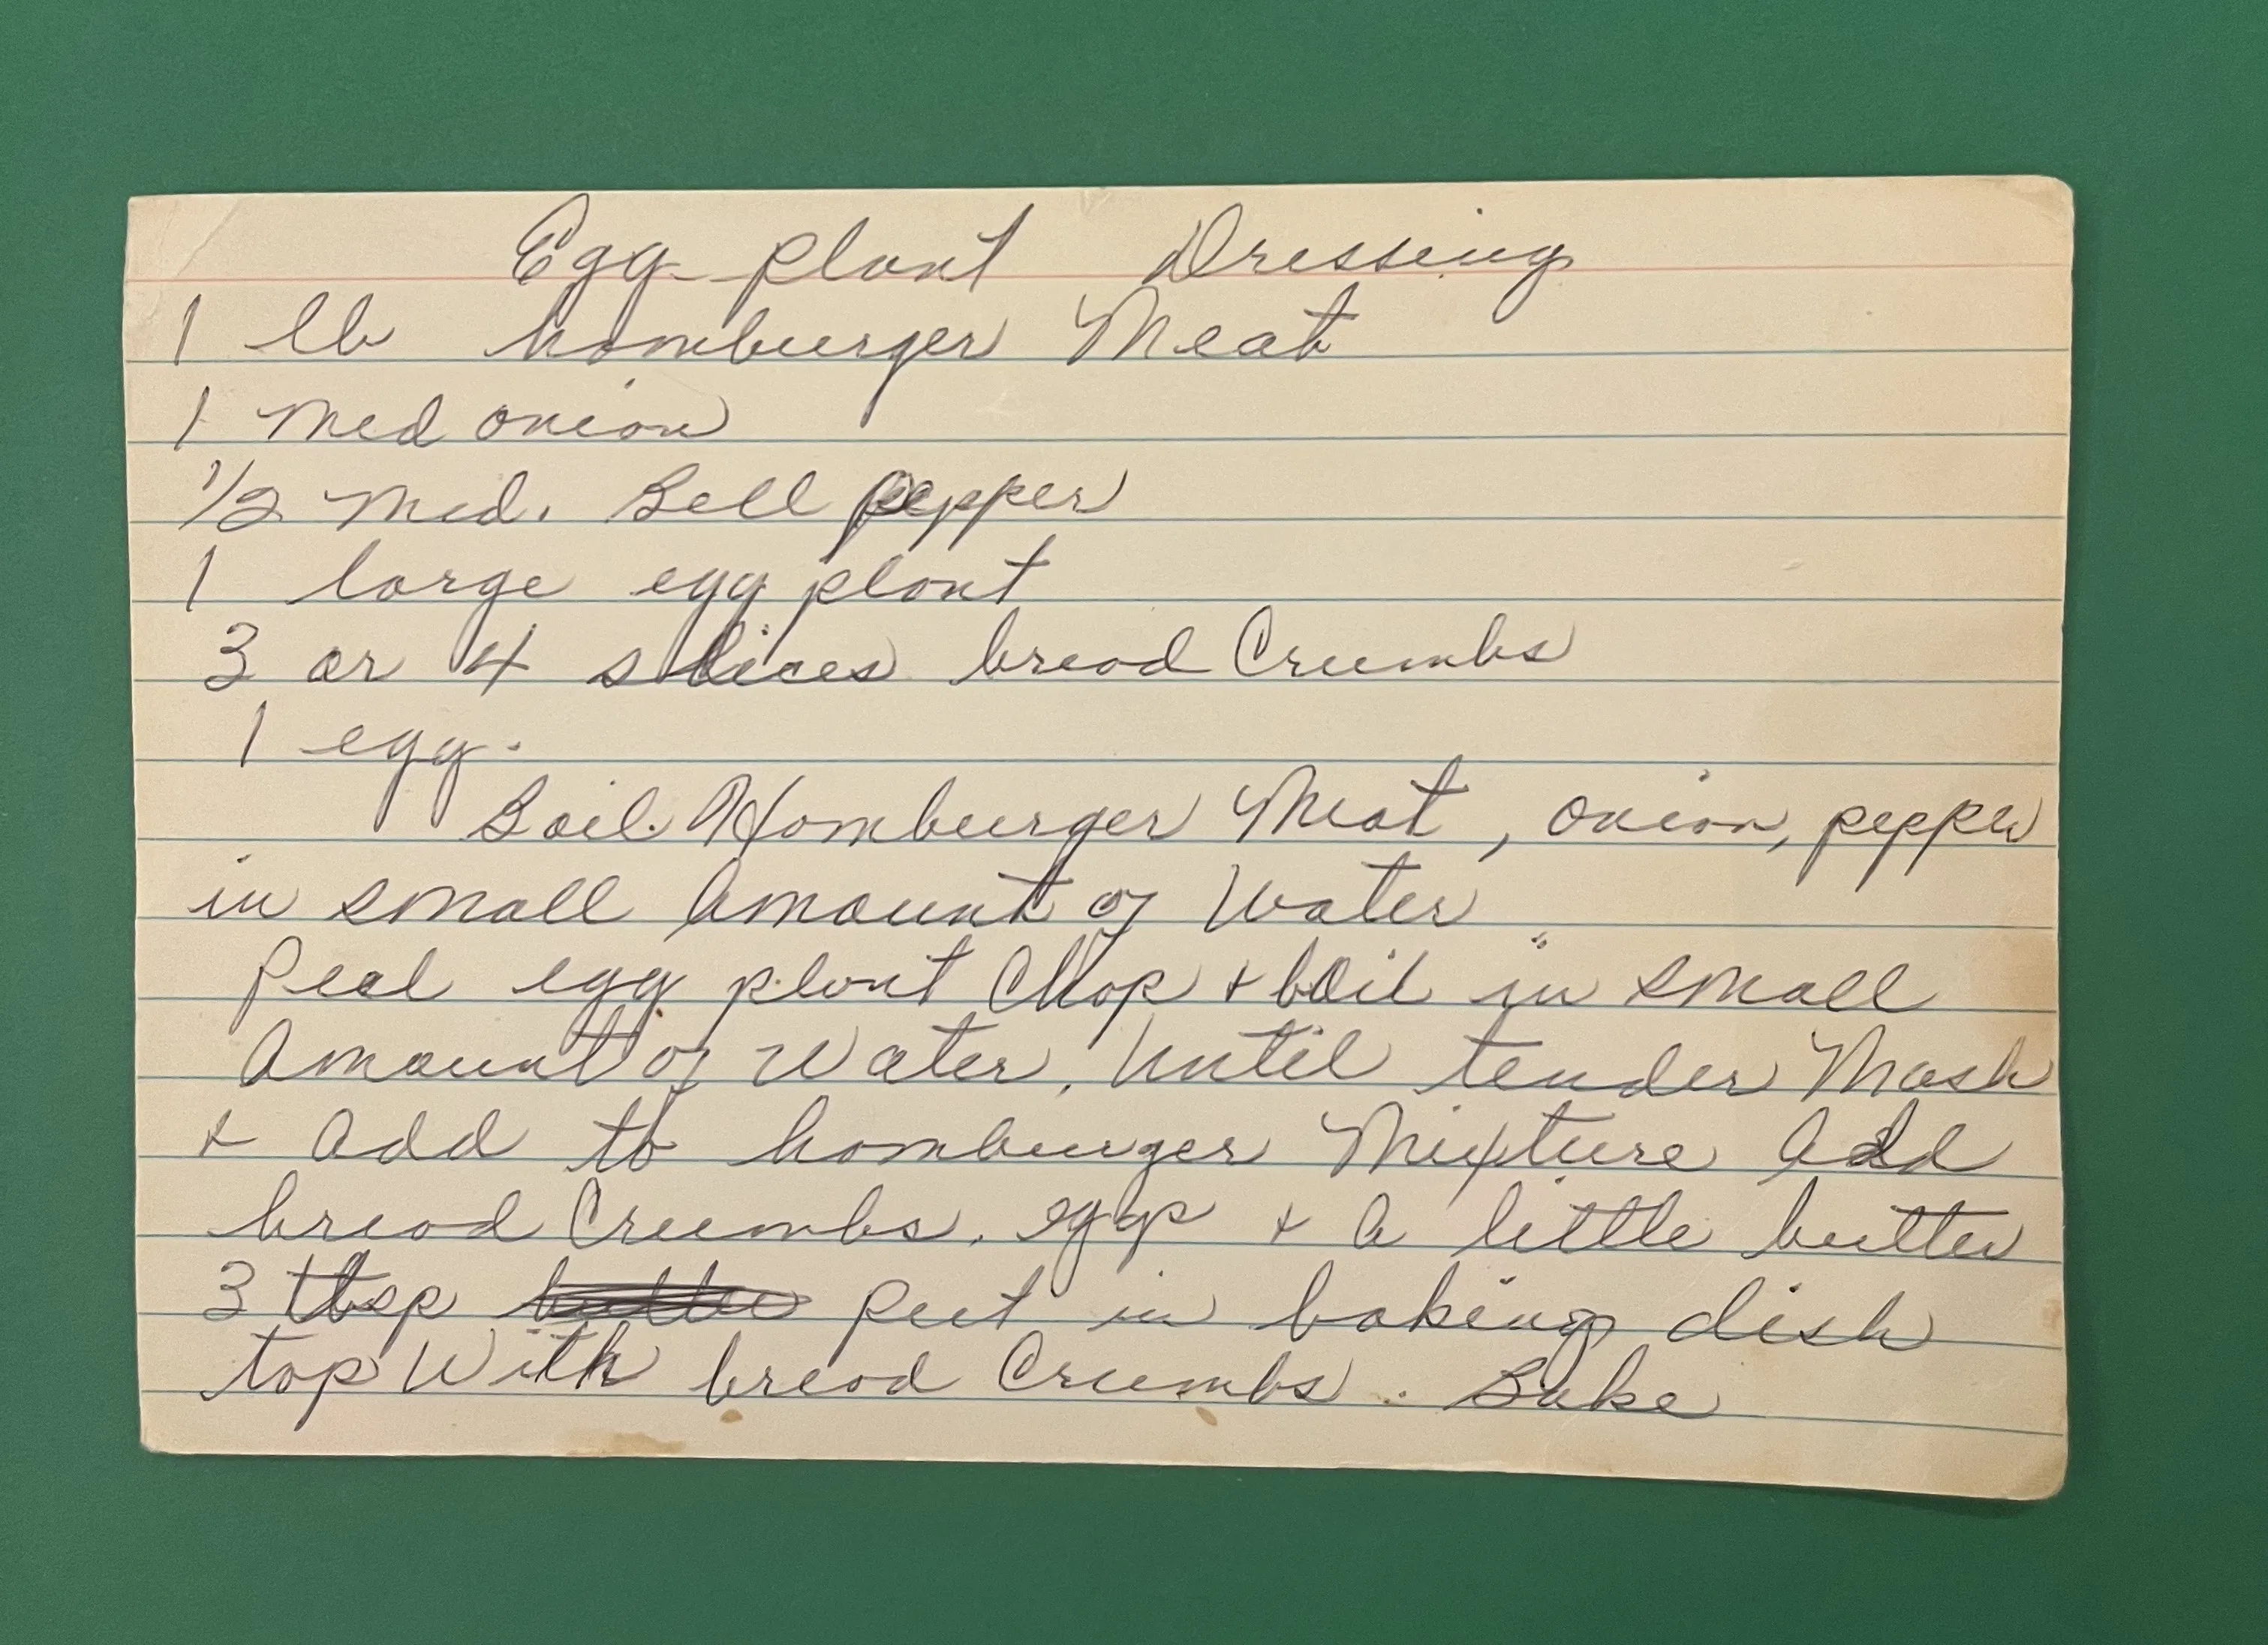 Egg plant Dressing
1 lb hamburger Meat
1 med onion
1/2 med. Bell pepper
1 large egg plant
3 or 4 slices bread Crumbs
1 egg.
Boil Hamburger Meat, onion, pepper
in small amount of Water
Peal egg plant Chop + boil in small
amount of Water, until tender Mash
+ add to hamburger Mixture add
bread Crumbs, egg + a little butter
3 tbsp put in baking dish
top With bread Crumbs. Bake